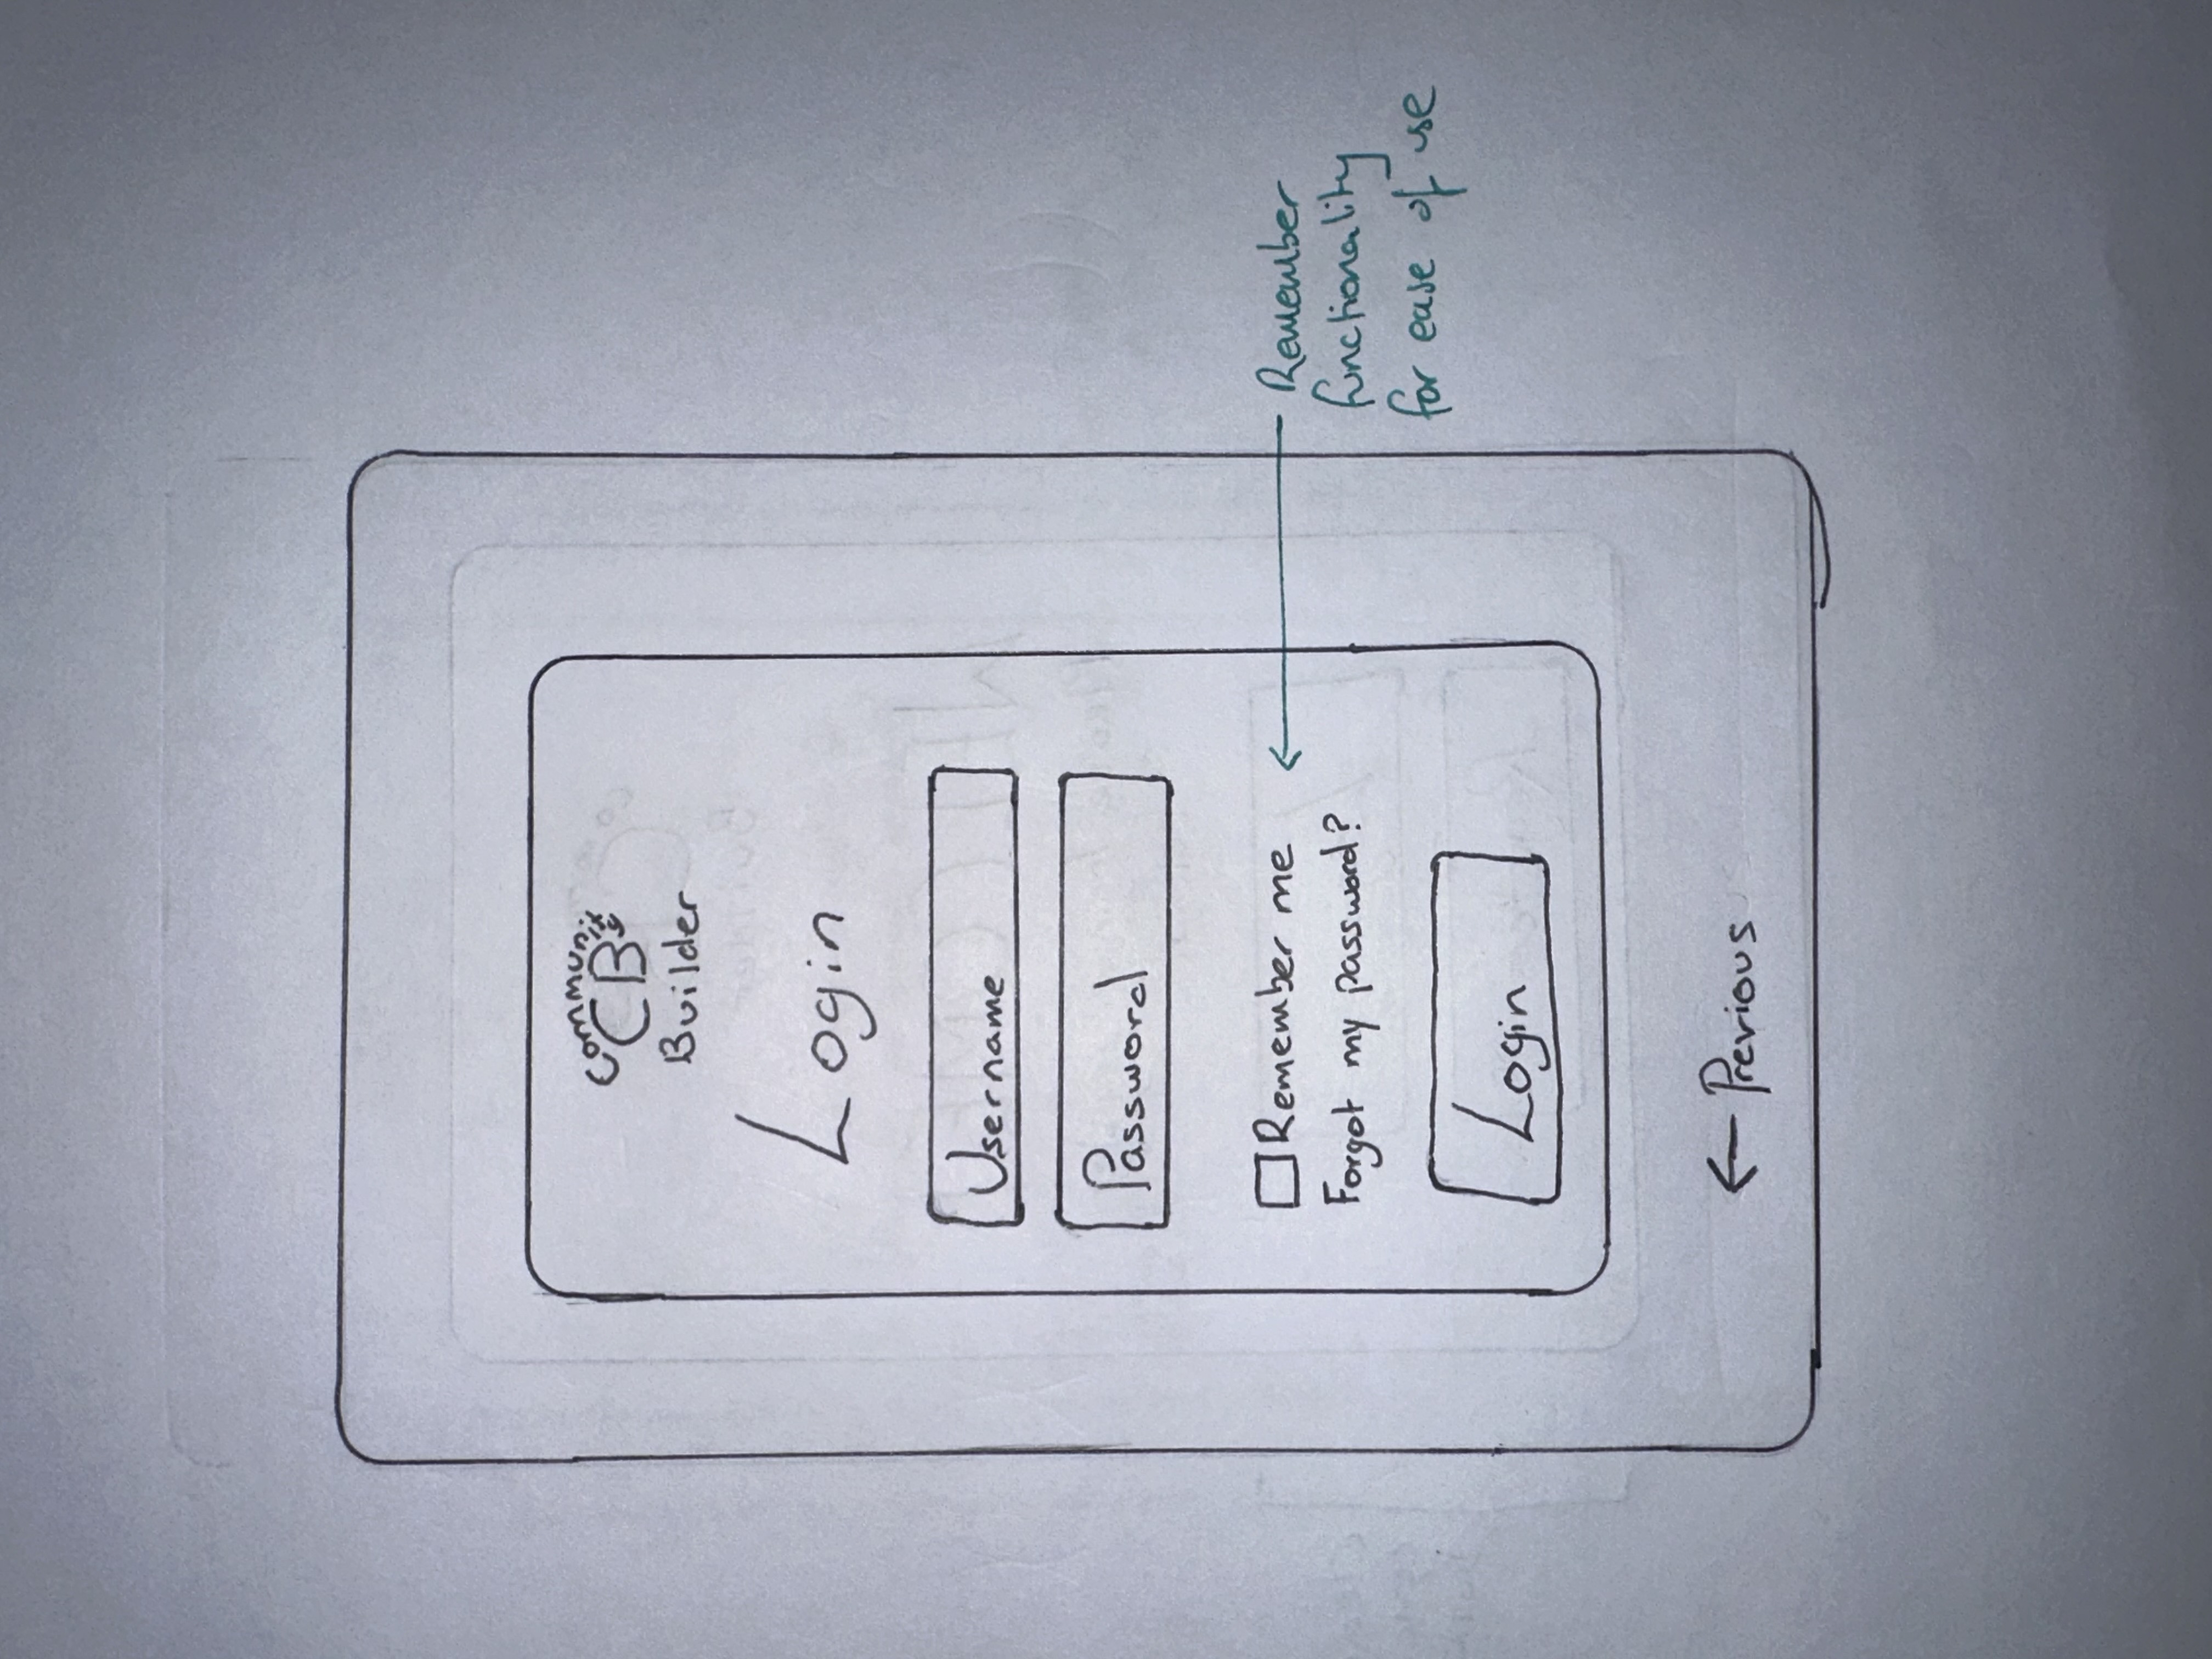 Community
CB
Builder
Login
Username
Password
Remember me
Forgot my password?
Login
← Previous
Remember
functionality
for ease of use